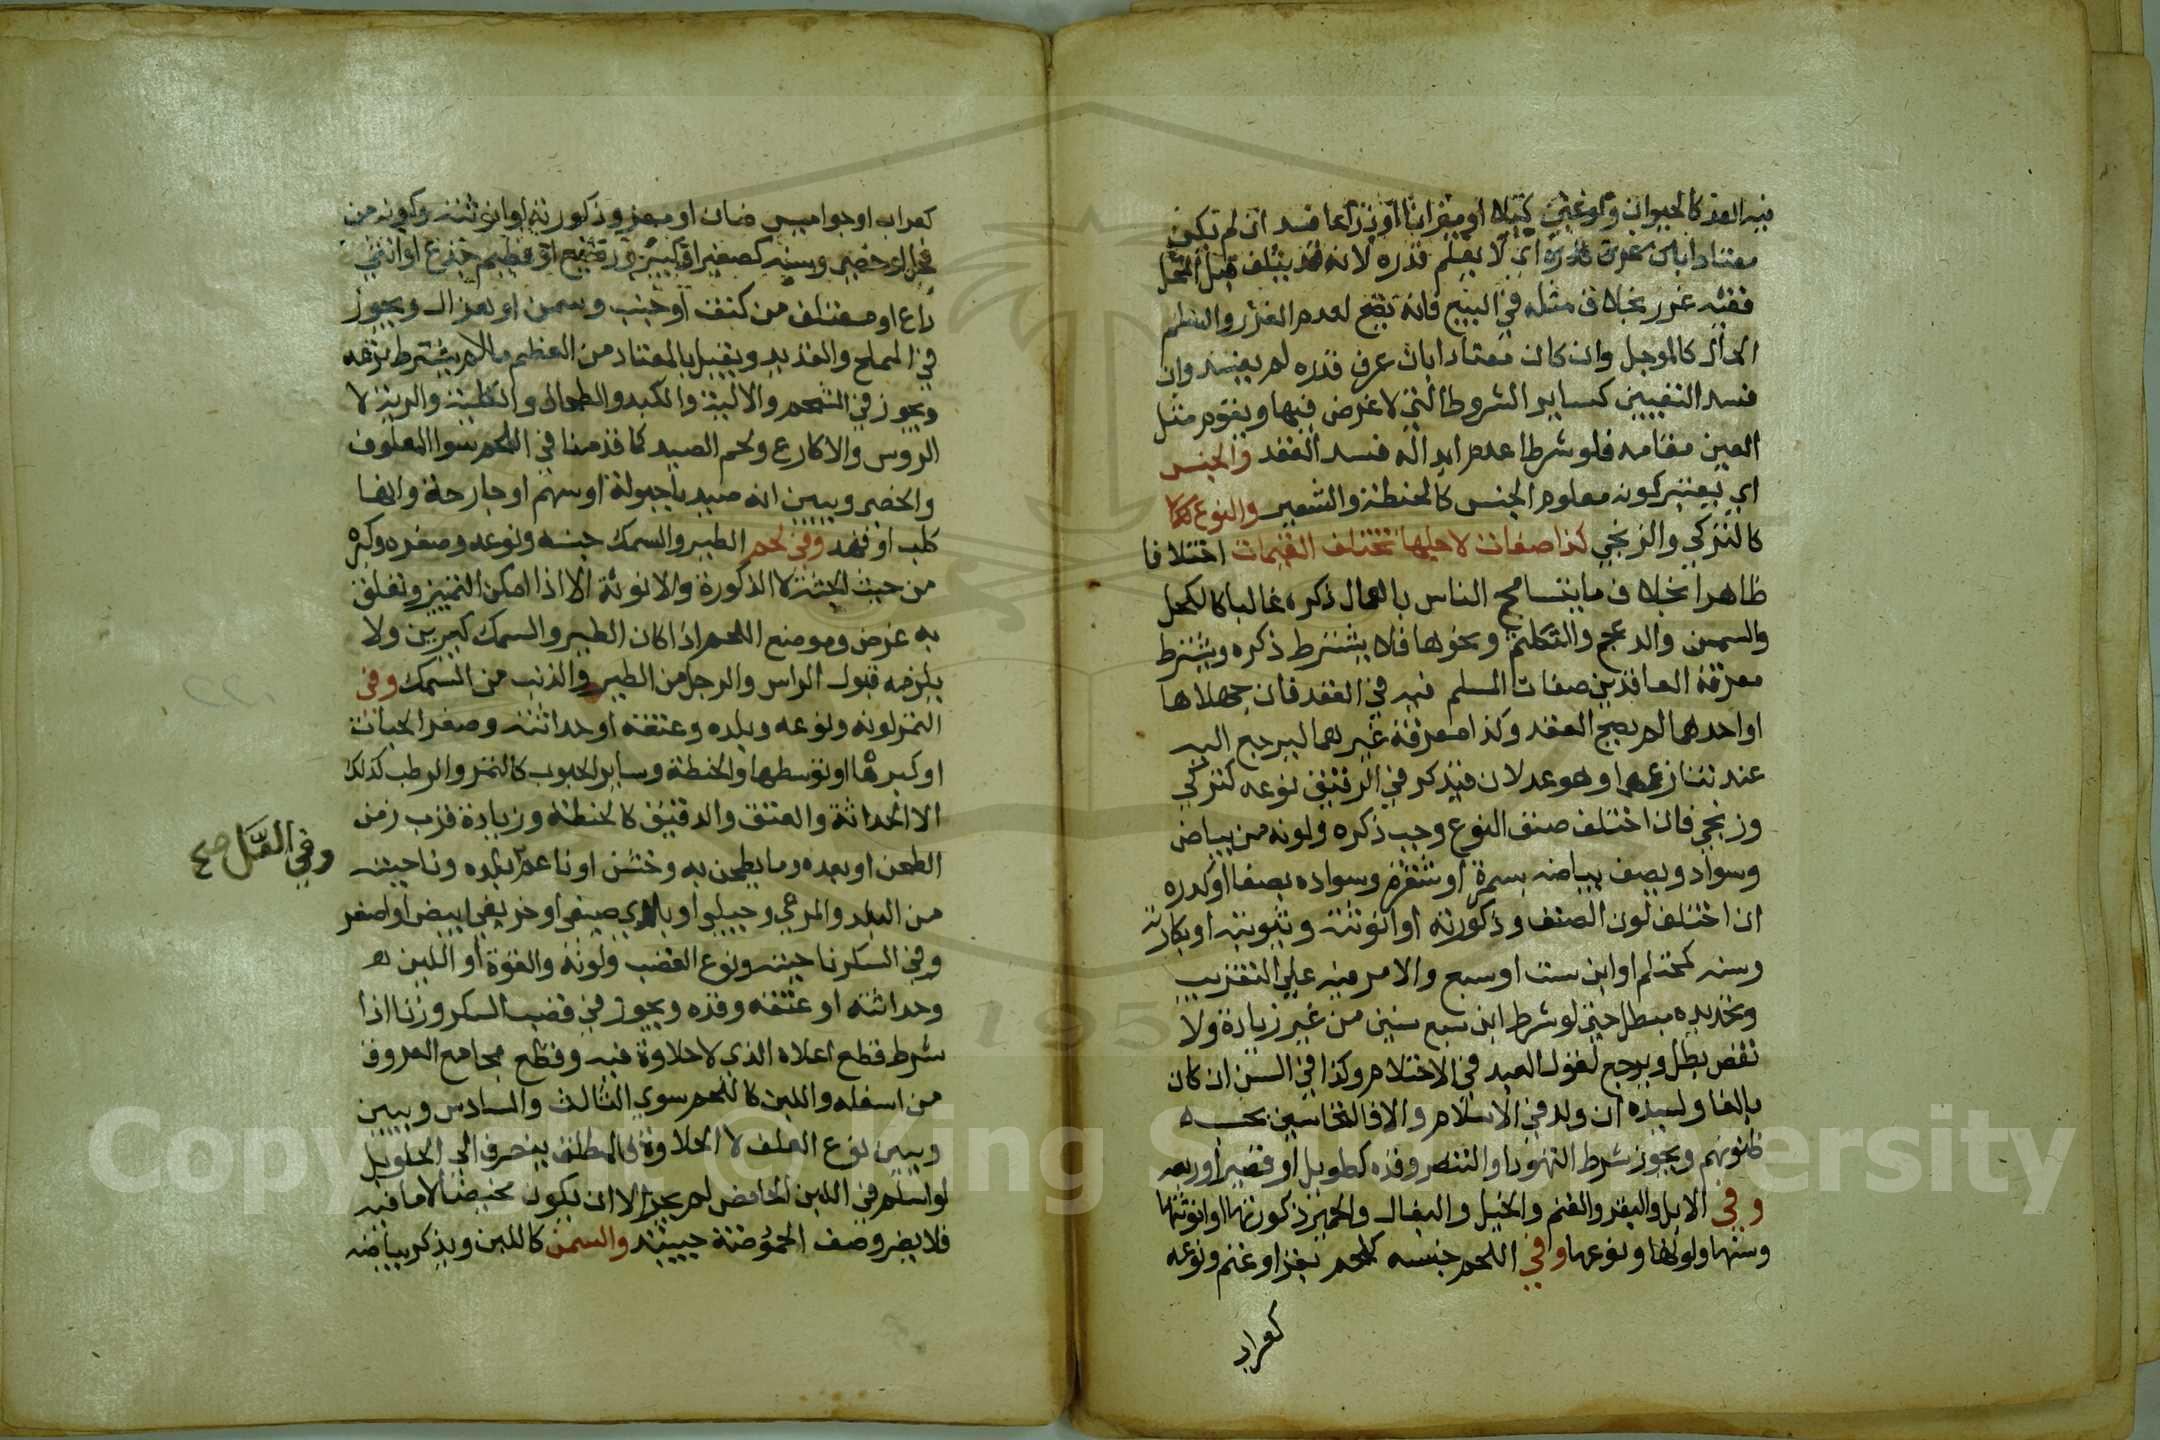 فيه العد كالحيوان ولو عين كيلا او ميزانا او ذراعا فسد ان لم تكن
معتادا بان عرف قدره اي لا يعلم قدره لانه قد يتلف قبل المحل
ففيه غرر بخلاف مثله في البيع فانه يصح لعدم الغرر والسلم
الحال كالموجل وان كان معتادا بان عرف قدره لم يفسد وان
فسد التعيين كساير الشروط التي لا غرض فيها ويقوم مثل
العين مقامه فلو شرطا عدم ابداله فسد العقد والجنس
اي يعتبر كونه معلوم الجنس كالحنطة والشعير والنوع
كالتركي والزنجي كذا صفات لاجلها تختلف القيمات اختلافا
ظاهرا بخلاف ما يتسامح الناس باهمال ذكره غالبا كالكحل
والسمن والدعج والتكلثم ونحوها فلا يشترط ذكره ويشترط
معرفة العاقدين صفات المسلم فيه في العقد فان جهلاها
او احدهما لم يصح العقد وكذا معرفة غيرهما ليرجع اليه
عند تنازعهما وهو عدلان فيذكر في الرقيق نوعه كتركي
وزنجي فان اختلف صنف النوع وجب ذكره ولونه من بياض
وسواد ويصف بياضه بسمرة او شقرة وسواده بصفا او كدره
ان اختلف لون الصنف وذكورته او انوثته وثيوبته او بكارته
وسنه كمحتلم او ابن ست او سبع والامر فيه علي التقريب
وتحديده مبطل حتي لو شرط ابن سبع سنين من غير زيادة ولا
نقص بطل ويرجع لقول العبد في الاحتلام وكذا في السن ان كان
بالغا ولسيده ان ولد في الاسلام والا فالنخاسين بحسب
ظنونهم ويجوز شرط التهود او التنصر وقده كطويل او قصير او ربعه
وفي الابل والبقر والغنم والخيل والبغال والحمير ذكورتها او انوثتها
وسنها ولونها ونوعها وفي اللحم جنسه كلحم بقر او غنم ونوعه
كعراب
كعراب او جواميس ضان او معز وذكورته او انوثته وكونه من
فحل او خصي وسنه كصغير او كبير ورضيع او فطيم جذع او ثني
راع او معتلف من كتف او جنب وسمن او هزال ويجوز
في المملح والقديد ويقبل بالمعتاد من العظم مالم يشترط نزعه
ويجوز في الشحم والالية والكبد والطحال والكلية والرية لا
الروس والاكارع ولحم الصيد كما قدمنا في اللحم سوا المعلوف
والخصي ويبين انه صيد باحبولة او سهم او جارحة وانها
كلب او فهد وفي لحم الطير والسمك جنسه ونوعه وصغره وكبره
من حيث الجثة لا الذكورة والانوثة الا اذا امكن التمييز وتعلق
به غرض وموضع اللحم اذا كان الطير والسمك كبيرين ولا
يلزمه قبول الراس والرجل من الطير والذنب من السمك وفي
التمر لونه ونوعه وبلده وعتقه او حداثته وصغر الحبات
او كبرها او توسطها والحنطة وساير الحبوب كالتمر والرطب كذلك
الا الحداثة والعتق والدقيق كالحنطة وزيادة قرب زمن
الطحن او بعده وما يطحن به وخشن او ناعم بلده وناحيته
وفي العسل صح
من البلد والمرعي وجبلي او بلدي صيفي او خريفي ابيض او اصفر
وفي السكر ناحيته ونوع القصب ولونه والقوة او اللين
وحداثته او عتقه وقده ويجوز في قصب السكر وزنا اذا
شرط قطع اعلاه الذي لا حلاوة فيه وقطع مجامع العروق
من اسفله واللبن كاللحم سوي الثالث والسادس ويبين
ويبين نوع العلف لا الحلاوة فالمطلق ينصرف الي الحلو بل
لو اسلم في اللبن الحامض لم يجز الا ان يكون مخيضا لا ما فيه
فلا يضر وصف الحموضة حينئذ والسمن كاللبن ويذكر بياضه